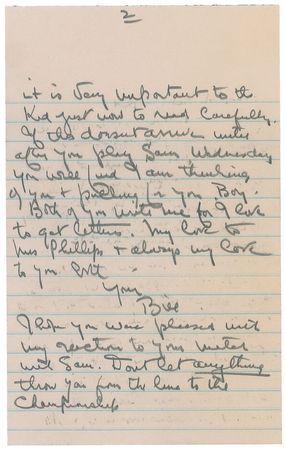 2
it is very important to the
Kid just now to read carefully.
If this doesn't arrive until
after you play Sam Wednesday
you will find I am thinking
of you & pulling for you Boy.
Both of you write me for I love
to get letters. My love to
Mrs Phillips & always my love
to you both
Your
Bill
I hope you were pleased with
my reaction to your match
with Sam. Don't let anything
throw you from the line to the
Championship